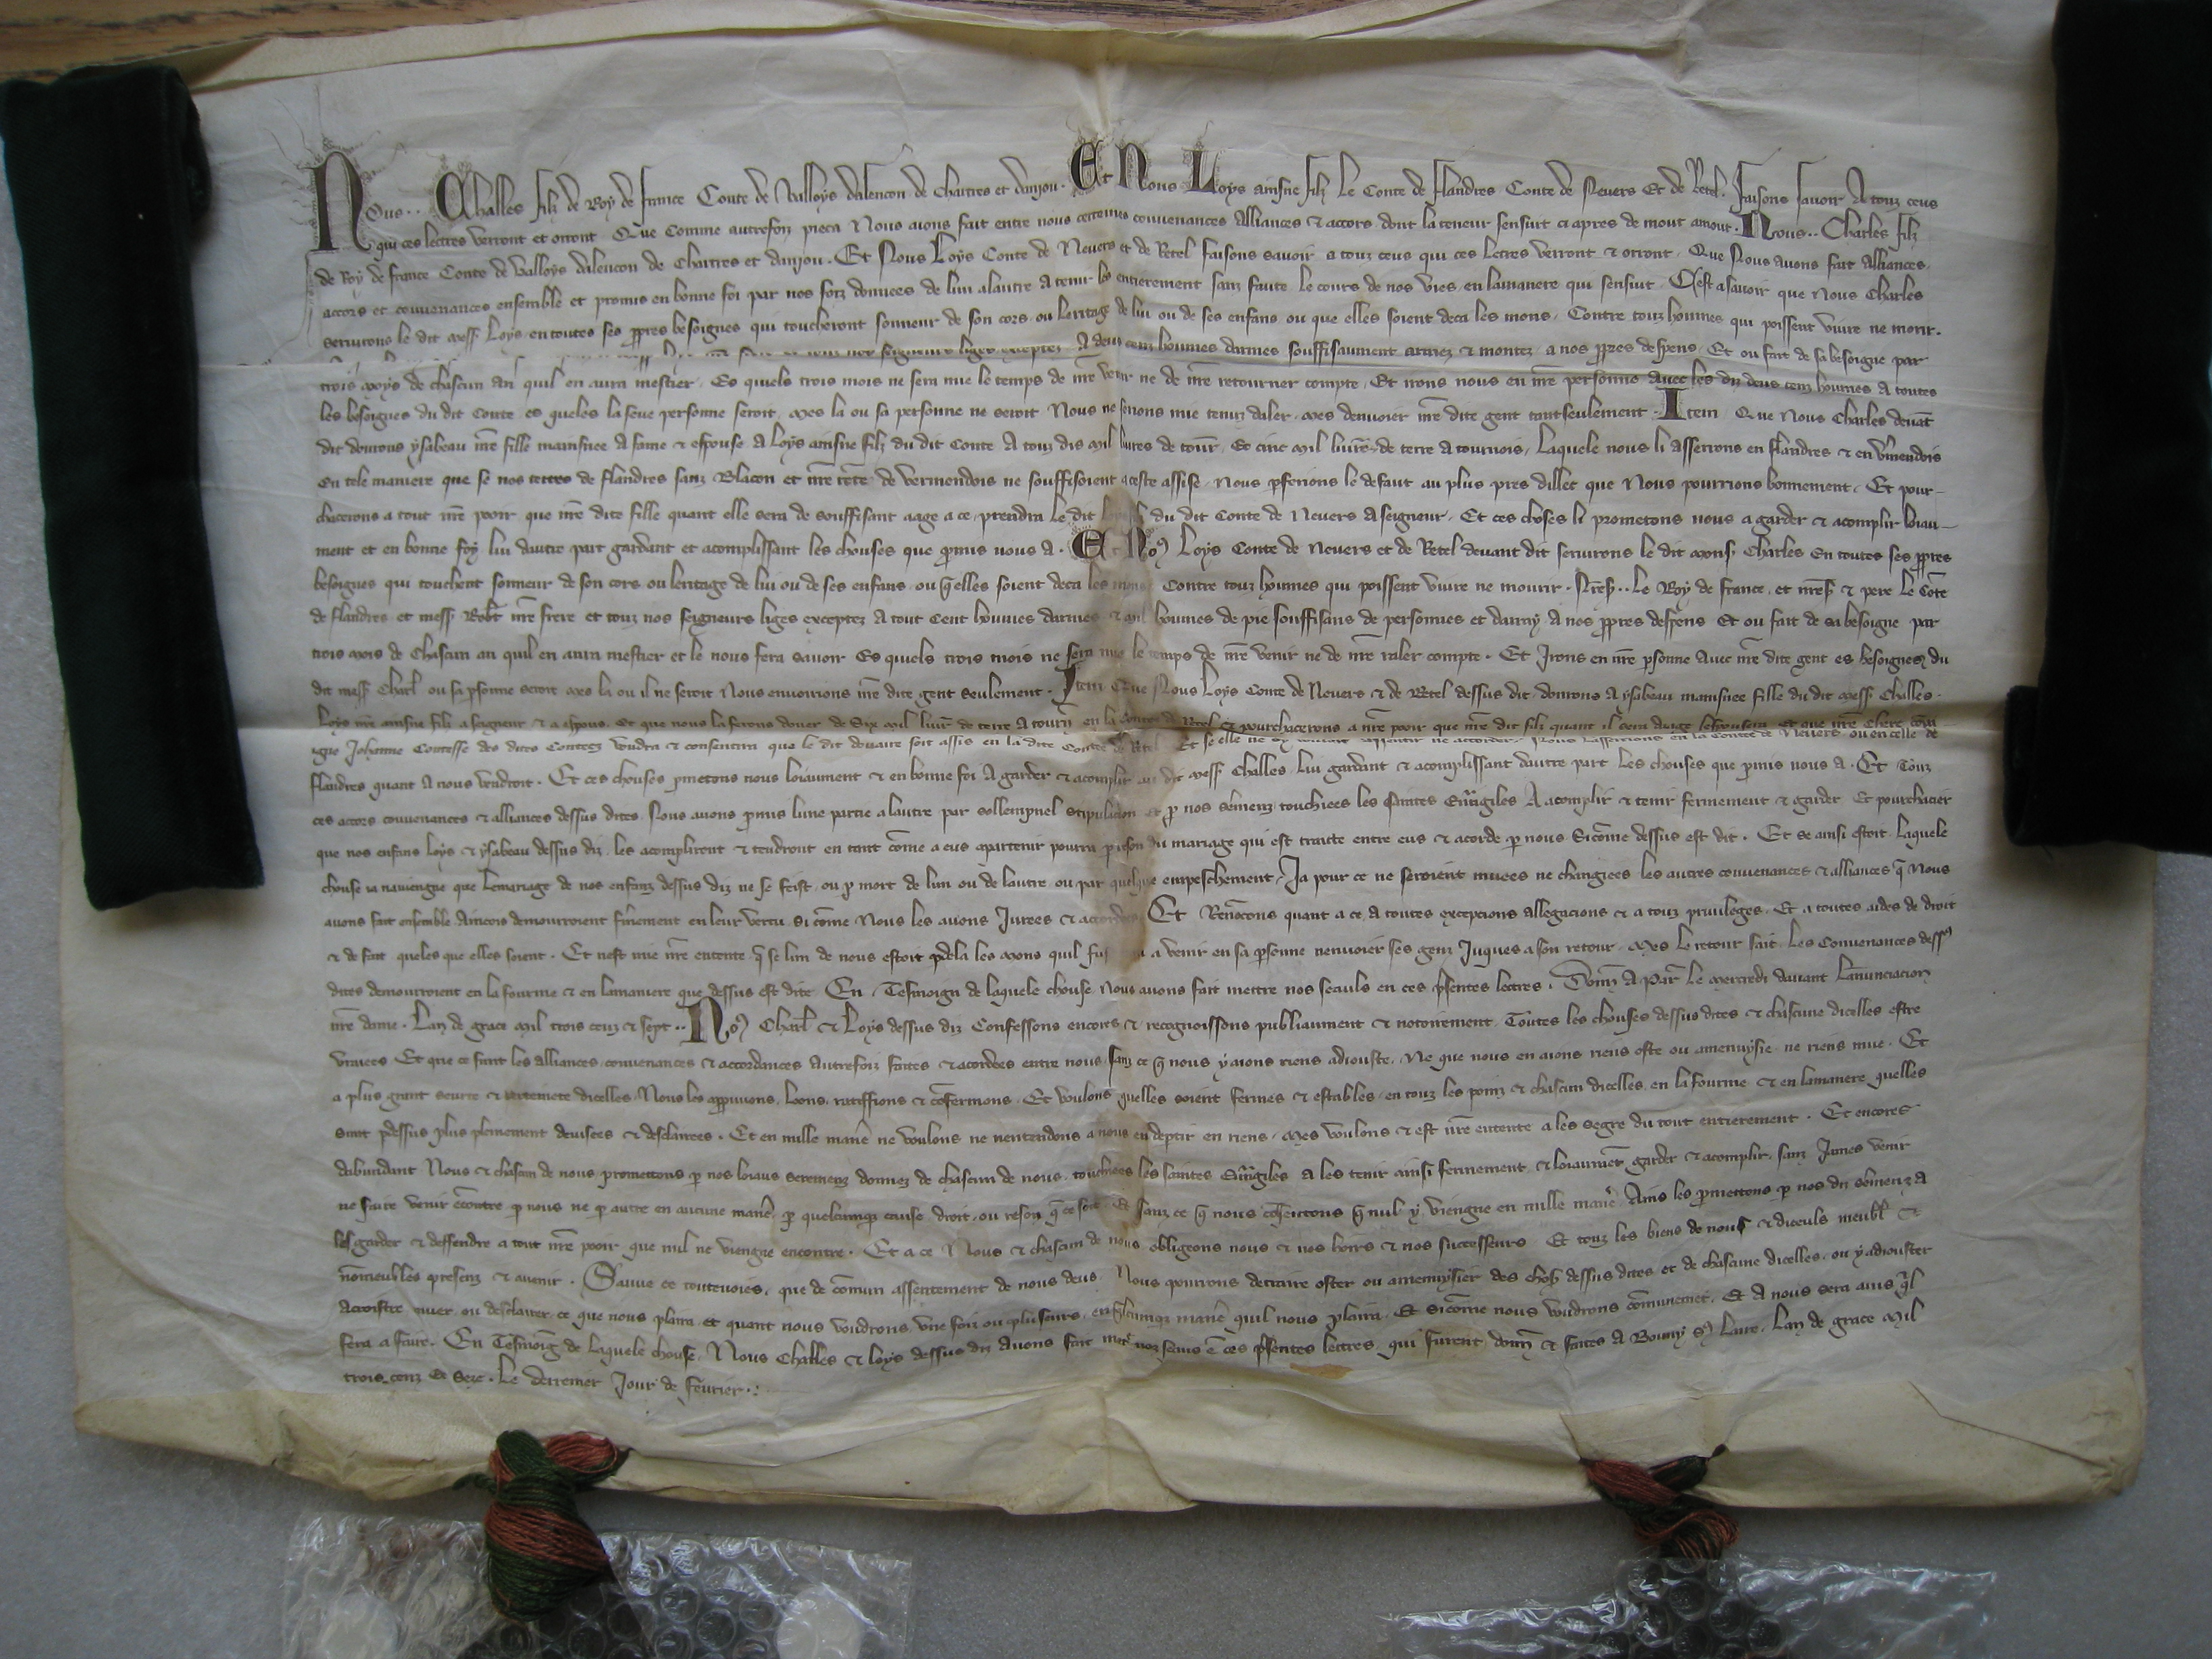 Nous .. Challes filz de Roy de france Conte de Valloys dalencon de Chartres et danjou . Et Nous Loys ainsne filz le Conte de flandres Conte de Nevers Et de Retel . faisons savoir A touz ceus
qui ces lettres verront et orront Que Comme autrefoiz pieca Nous aions fait entre nous certeines convenances Alliances & accors dont la teneur sensuit ci apres de mout amout . Nous .. Charles filz
de Roy de france Conte de Valloys dalencon de Chartres et danjou . Et Nous Loys Conte de Nevers et de Retel faisons savoir a touz ceus qui ces letres verront & orront . Que Nous avons fait Alliances
accors et convenances ensemble et promis en bonne foi par nos foiz donnees de lun alautre A tenir les entierement sanz faute le cours de nos vies en lamaniere qui sensiut . Cest asavoir que Nous Charles
servirons le dit mess Loys en toutes ses ppres besoignes qui toucheront sonneur de son cors . ou leritage de lui ou de ses enfans ou que elles soient deca les mons . Contre touz hommes qui poissent vivre ne morir .
seigneurs liges exceptez A deus cenz hommes darmes souffisaument armez & montez a nos ppres despens . Et ou fait de sa besoigne par
trois moys de chascun an quil en aura mestier . Es quels trois mois ne sera mie le temps de nre venir ne de nre retourner compte . Et irons nous en nre personne avec les diz deus cenz hommes A toutes
les besoignes du dit Conte es queles la seue personne seroit . mes la ou sa personne ne seroit Nous ne serions mie tenuz daler . mes denvoier nre dite gent tantseulement . Item Que Nous Charles devat
dit donrons ysabeau nre fille mainsnee A fame & espouse A Loys ainsne filz du dit Conte A touz dis mil livres de tour . Et cinc mil livrees de terre a tournois . Laquele nous li asserrons en flandres & en Vmendois
En tele maniere que se nos terres de flandres sanz Blaton et nre terre de vermendois ne souffisoient aceste assise . Nous pferions le defaut au plus pres dillec que Nous pourrions bonnement . Et pour-
chacerons a tout nre pooir que nre dite fille quant elle sera de souffisant aage a ce prendra le dit du dit Conte de Nevers A seigneur . Et ces choses li prometons nous a garder & acomplir loiau-
ment et en bonne foy lui dautre part gardant et acomplissant les chouses que pmis nous a . Et No9 Loys Conte de Nevers et de Retel devant dit servirons le dit mons Charles En toutes ses ppres
besoignes qui touchent sonneur de son cors ou leritage de lui ou de ses enfans . ou q elles soient deca les mons . Contre touz hommes qui poissent vivre ne mourir . Nres .. le Roy de france . et nres & pere le Cote
de flandres et mess Robt nre frere et touz nos seigneurs liges exceptez A tout Cent hommes darmes & mil hommes de pie souffisans de personnes et darmy A nos ppres despens Et ou fait de sa besoigne par
trois mois de Chascun an quil en aura mestier et le nous fera savoir Es quels trois mois ne sera mie le temps de nre venir ne de nre raler compte . Et Irons en nre psonne Avec nre dite gent es besoignes du
dit mess Charl ou sa psonne seroit mes la ou il ne seroit Nous envoirions nre dite gent seulement . Item Que Nous Loys Conte de Nevers & de Retel dessus dit donrons A ysabeau mainsnee fille du dit mess Challes .
Loys nre ainsne filz a seigneur & a espous . Et que nous la ferons doner de Six mil livr de terre A tourn en la Conte de Retel Et pourchacerons a nre pooir que nre dit filz quant il sera daage lespousera Et que nre chere com-
igne Johanne Contesse des dites Contees voudra & consentira que le dit douaire soit assis en la dite Conte de Retel Et se elle ne accorder Nous lasserrions en la Contee de Nevers ou en celle de
flandres quant A nous vendroit . Et ces chouses pmetons nous loiaument & en bonne foi A garder & acomplir au dit mess Challes . lui gardant & acomplissant dautre part les chouses que pmis nous a . Et Touz
ces accors convenances & alliances dessus dites Nous avons pmis lune partie alautre par sollempnel stipulacion et p nos semenz touchiees les saintes Euvagiles A acomplir & tenir fermement & garder Et pourchacier
que nos enfans Loys & ysabeau dessus diz . les acompliront & tendront en tant come a eus apartenir pourra p reson du mariage qui est traitte entre eus & acorde p nous Sicome dessus est dit . Et se ainsi estoit . laquele
chouse ia naviengne que le mariage de nos enfanz dessus diz ne se feist . ou p mort de lun ou de lautre . ou par quelque empeschement . Ja pour ce ne seroient muees ne changiees les autres convenances & alliances q Nous
avons fait ensemble Aincois demourroient fmement en leur vertu . si come Nous les avons Jurees & accordees Et Renocons quant a ce . a toutes excepcions allegacions & a touz privileges . Et a toutes aides de droit
& de fait queles que elles soient . Et nest mie nre entente . q se lun de nous estoit pdela les mons quil a venir en sa psonne nenvoier ses genz Juques a son retour . mes le retour fait . les Convenances dess9
dites demourroient en la fourme & en lamaniere que dessus est dite En Tesmoign de laquele chouse nous avons fait mettre nos seauls en ces psentes lettres . Donn A Par le mercredi davant Lanunciacion
nre dame . Lan de grace mil trois cenz & sept .. No9 Charl & Loys dessus diz Confessons encores & recognoissons publiaument & notoirement . Toutes les chouses dessus dites & chascune dicelles estre
vraiees Et que ce sunt les alliances convenances & accordances autrefoiz faites & acordees entre nous sanz ce q nous y aions riens adiouste . Ne que nous en aions riens oste ou amenuysie ne riens mue . Et
a plus grant seurte & certeinete dicelles . Nous les appruvons . Loons . ratiffions & cofermons . Et voulons quelles soient fermes & estables en touz les poinz & chascun dicelles . en la fourme & en lamaniere quelles
sunt pdessus plus pleinement devisees & desclarees . Et en nulle mane ne voulons ne nentendons a nous en deptir en riens . mes voulons & est nre entente a les segre du tout entierement . Et encores
dabundant Nous & chascun de nous promettons p nos loiaus seremenz donnez de chascun de nous . touchiees les saintes Euvagiles a les tenir ainsi fermement & loiaumet garder & acomplir . sanz James venir
ne faire venir econtre p nous ne p autre en aucune mane . p quelcumq cause droit . ou reson q ce soit . Et sanz ce q nous q nul y viengne en nulle mane Ains les pmettons p nos diz semenz a
les garder & deffendre a tout nre pooir que nul ne viengne encontre . Et a ce Nous & chascun de nous obligeons nous & nos hoirs & nos successeurs Et touz les biens de nous & diceuls meubl &
nomeubles presenz & avenir . Sauve ce toutevoies . que de comun assentement de nous deus . Nous pourrons detraire oster ou amenuysier des chos dessus dites et de chascune dicelles . ou y adiouster
Acroistre muer . ou desclairer . ce que nous plaira et quant nous voudrons une foiz ou pluseurs . en qlcumq mane quil nous plaira . Et sicome nous voudrons comunemet . Et A nous sera avis qil
sera a faire . En Tesmoig de laquele chouse . Nous Challes & loys dessus diz Avons fait metr noz seaus e ces psentes lettres . qui furent donn & faites A Bonny s9 Laire . Lan de grace Mil
trois . cenz Et Seze . Le derrenier Jour de fevrier . :